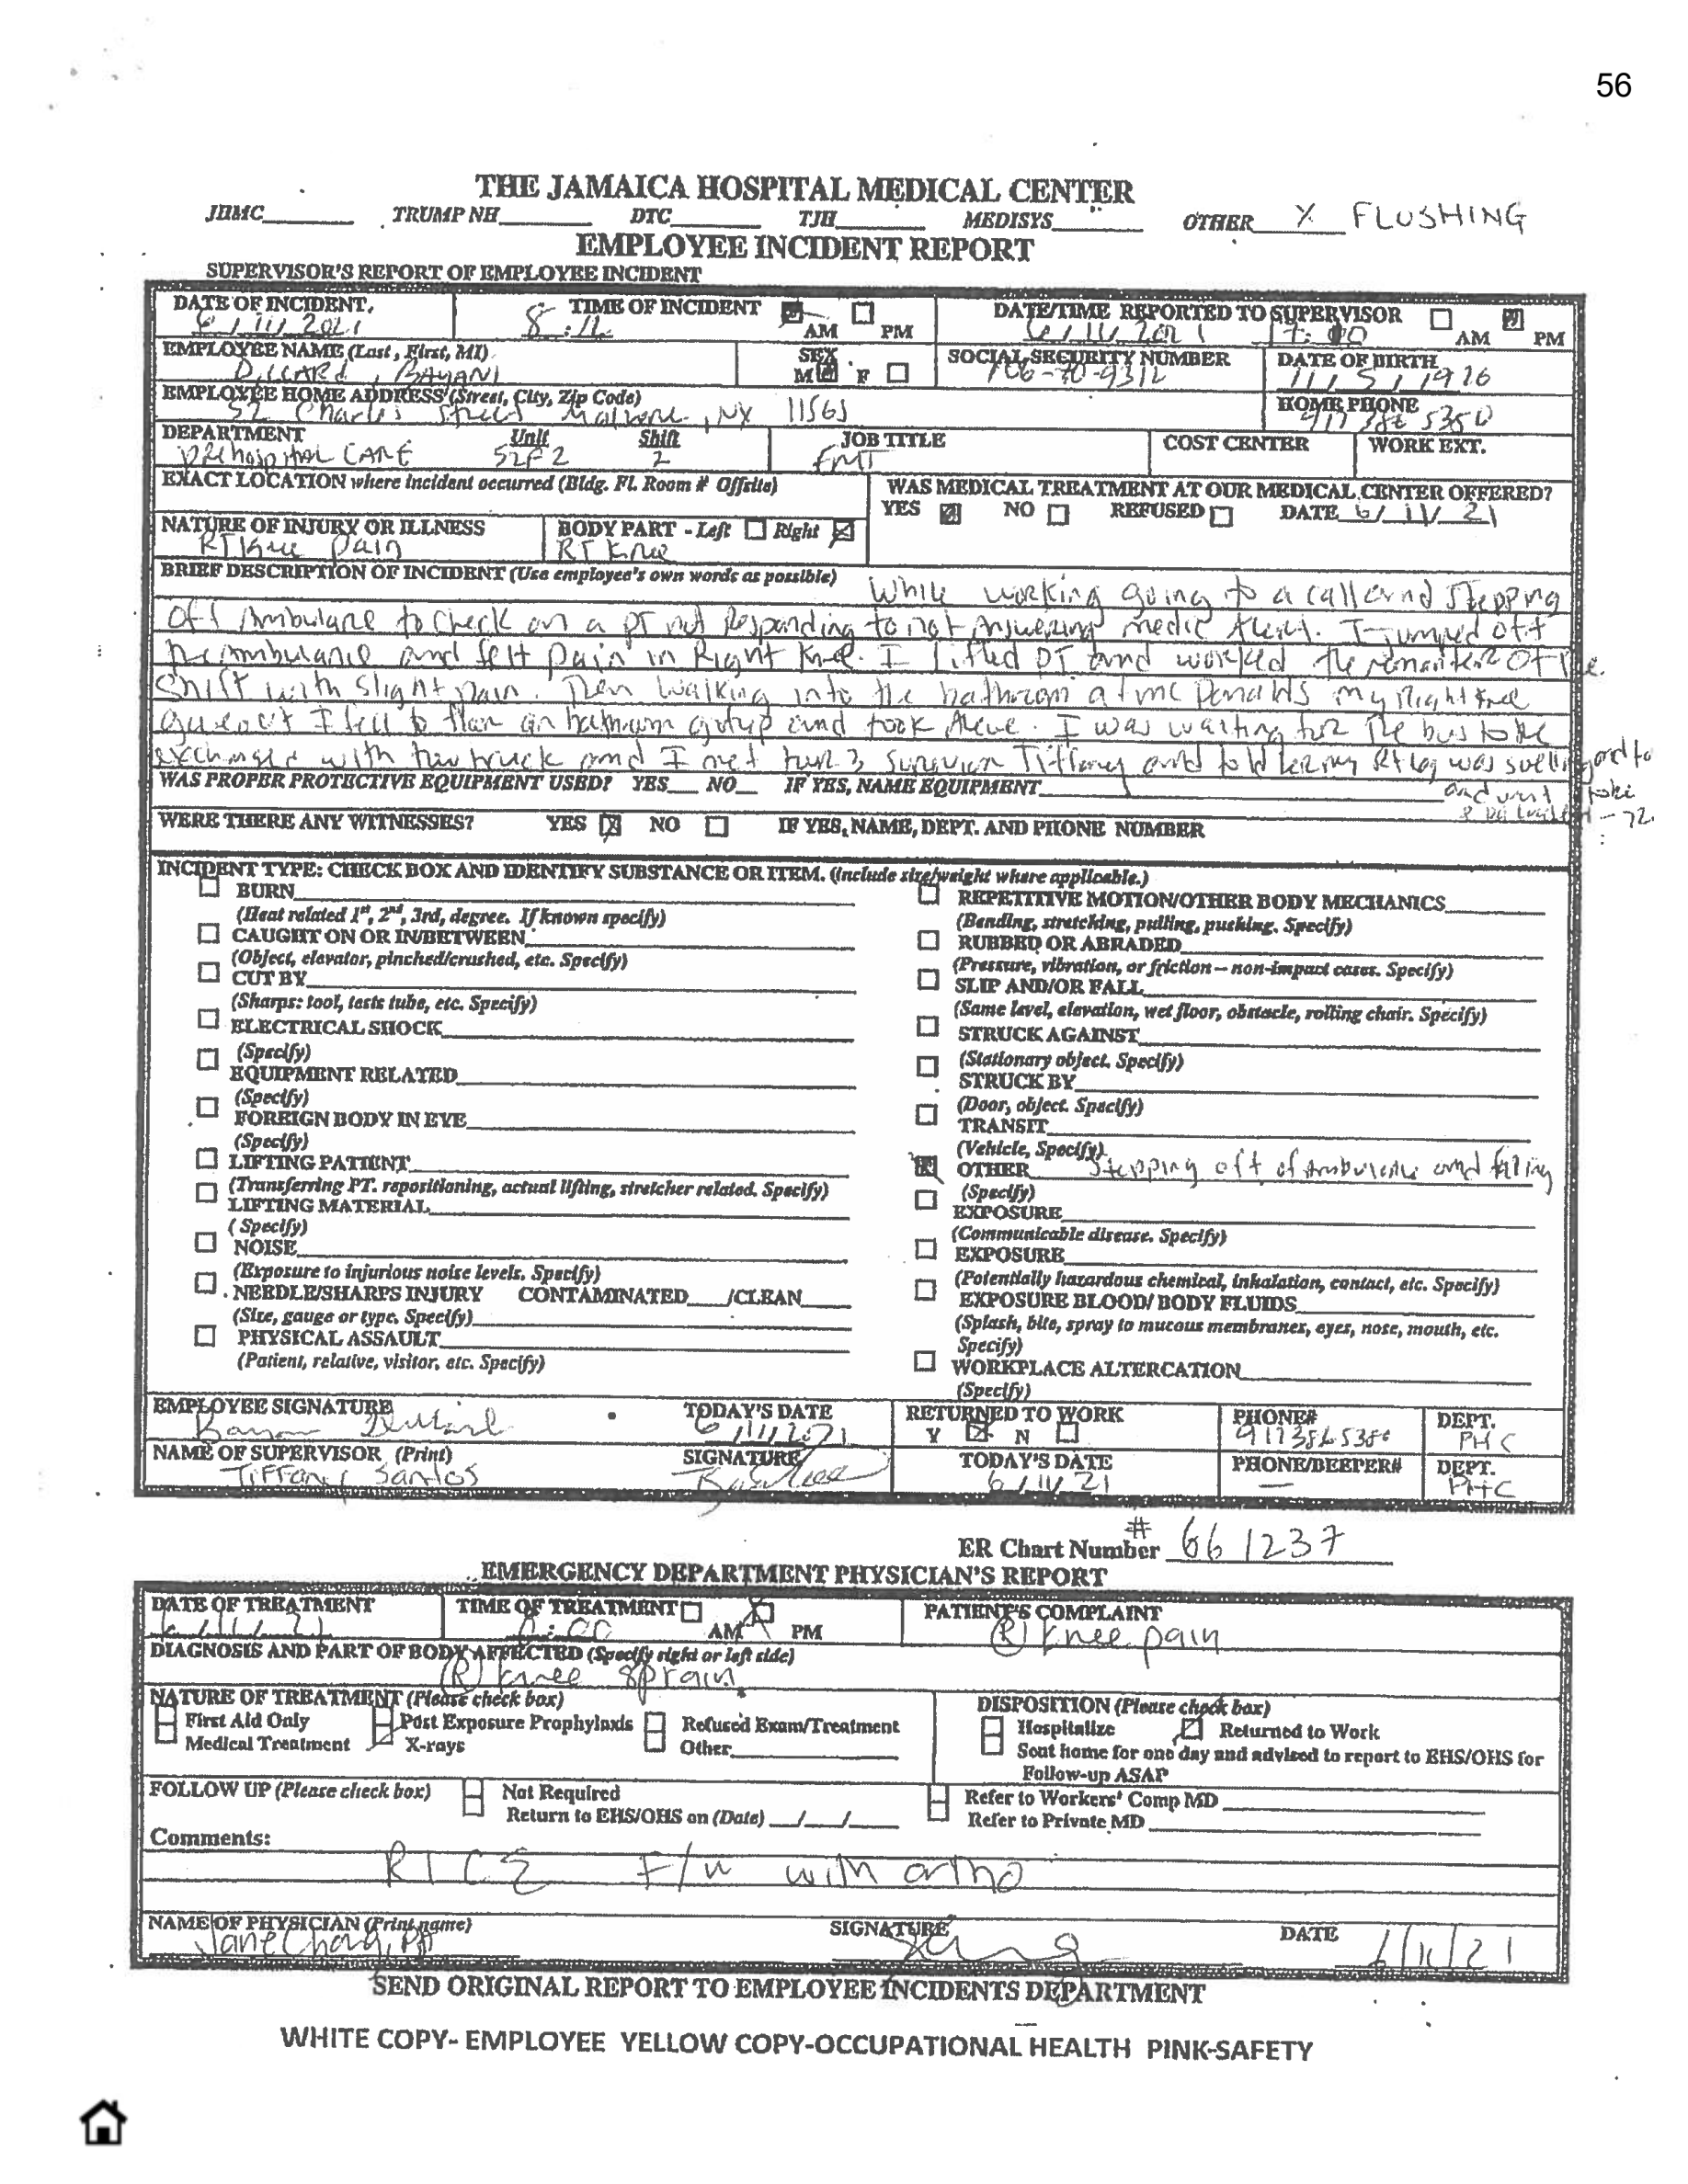 56
THE JAMAICA HOSPITAL MEDICAL CENTER
JHMC TRUMP NH DTC TJH MEDISYS OTHER X FLUSHING
EMPLOYEE INCIDENT REPORT
SUPERVISOR'S REPORT OF EMPLOYEE INCIDENT
DATE OF INCIDENT. TIME OF INCIDENT AM PM DATE/TIME REPORTED TO SUPERVISOR AM PM
6/11/2021 6/11/2021
EMPLOYEE NAME (Last, First, MI) SEX M F SOCIAL SECURITY NUMBER DATE OF BIRTH
BAYANI
EMPLOYEE HOME ADDRESS (Street, City, Zip Code) HOME PHONE
52 Charles Street Malverne, NY 11565
DEPARTMENT Unit Shift JOB TITLE COST CENTER WORK EXT.
PREhospital CARE 52F2 2 EMT
EXACT LOCATION where incident occurred (Bldg. Fl. Room # Offsite) WAS MEDICAL TREATMENT AT OUR MEDICAL CENTER OFFERED?
YES NO REFUSED DATE 6/11/21
NATURE OF INJURY OR ILLNESS BODY PART - Left Right
RT Knee Pain RT Knee
BRIEF DESCRIPTION OF INCIDENT (Use employee's own words as possible) While working going to a call and stepping
off Ambulance to check on a PT not Responding to not Answering medic Alert. I jumped off
the ambulance and felt pain in Right Knee. I lifted PT and worked the remainder of the
Shift with slight pain. Then walking into the bathroom at mc Donalds my Right knee
gave out I fell to floor in bathroom got up and took Aleve. I was waiting for the bus to be
exchanged with and I met Tiffany and told her my Rt leg was swelling
WAS PROPER PROTECTIVE EQUIPMENT USED? YES NO IF YES, NAME EQUIPMENT
and went
WERE THERE ANY WITNESSES? YES NO IF YES, NAME, DEPT. AND PHONE NUMBER
INCIDENT TYPE: CHECK BOX AND IDENTIFY SUBSTANCE OR ITEM. (Include size/weight where applicable.)
BURN
(Heat related 1st, 2nd, 3rd, degree. If known specify)
CAUGHT ON OR IN/BETWEEN
(Object, elevator, pinched/crushed, etc. Specify)
CUT BY
(Sharps: tool, tests tube, etc. Specify)
ELECTRICAL SHOCK
(Specify)
EQUIPMENT RELATED
(Specify)
FOREIGN BODY IN EYE
(Specify)
LIFTING PATIENT
(Transferring PT. repositioning, actual lifting, stretcher related. Specify)
LIFTING MATERIAL
(Specify)
NOISE
(Exposure to injurious noise levels. Specify)
NEEDLE/SHARPS INJURY CONTAMINATED /CLEAN
(Size, gauge or type. Specify)
PHYSICAL ASSAULT
(Patient, relative, visitor, etc. Specify)
REPETITIVE MOTION/OTHER BODY MECHANICS
(Bending, stretching, pulling, pushing. Specify)
RUBBED OR ABRADED
(Pressure, vibration, or friction – non-impact cases. Specify)
SLIP AND/OR FALL
(Same level, elevation, wet floor, obstacle, rolling chair. Specify)
STRUCK AGAINST
(Stationary object. Specify)
STRUCK BY
(Door, object. Specify)
TRANSIT
(Vehicle, Specify)
OTHER Stepping off of Ambulance and falling
(Specify)
EXPOSURE
(Communicable disease. Specify)
EXPOSURE
(Potentially hazardous chemical, inhalation, contact, etc. Specify)
EXPOSURE BLOOD/ BODY FLUIDS
(Splash, bite, spray to mucous membranes, eyes, nose, mouth, etc.
Specify)
WORKPLACE ALTERCATION
(Specify)
EMPLOYEE SIGNATURE TODAY'S DATE RETURNED TO WORK PHONE# DEPT.
6/11/2021 Y N PHC
NAME OF SUPERVISOR (Print) SIGNATURE TODAY'S DATE PHONE/BEEPER# DEPT.
Tiffany Santos 6/11/21 — PHC
ER Chart Number # 661237
EMERGENCY DEPARTMENT PHYSICIAN'S REPORT
DATE OF TREATMENT TIME OF TREATMENT AM PM PATIENT'S COMPLAINT
6/11/21 (R) knee pain
DIAGNOSIS AND PART OF BODY AFFECTED (Specify right or left side)
(R) knee sprain
NATURE OF TREATMENT (Please check box) DISPOSITION (Please check box)
First Aid Only Post Exposure Prophylaxis Refused Exam/Treatment Hospitalize Returned to Work
Medical Treatment X-rays Other Sent home for one day and advised to report to EHS/OHS for
Follow-up ASAP
FOLLOW UP (Please check box) Not Required Refer to Workers' Comp MD
Return to EHS/OHS on (Date) / / Refer to Private MD
Comments:
RICE F/u with ortho
NAME OF PHYSICIAN (Print name) SIGNATURE DATE
Jane PA 6/11/21
SEND ORIGINAL REPORT TO EMPLOYEE INCIDENTS DEPARTMENT
WHITE COPY- EMPLOYEE YELLOW COPY-OCCUPATIONAL HEALTH PINK-SAFETY